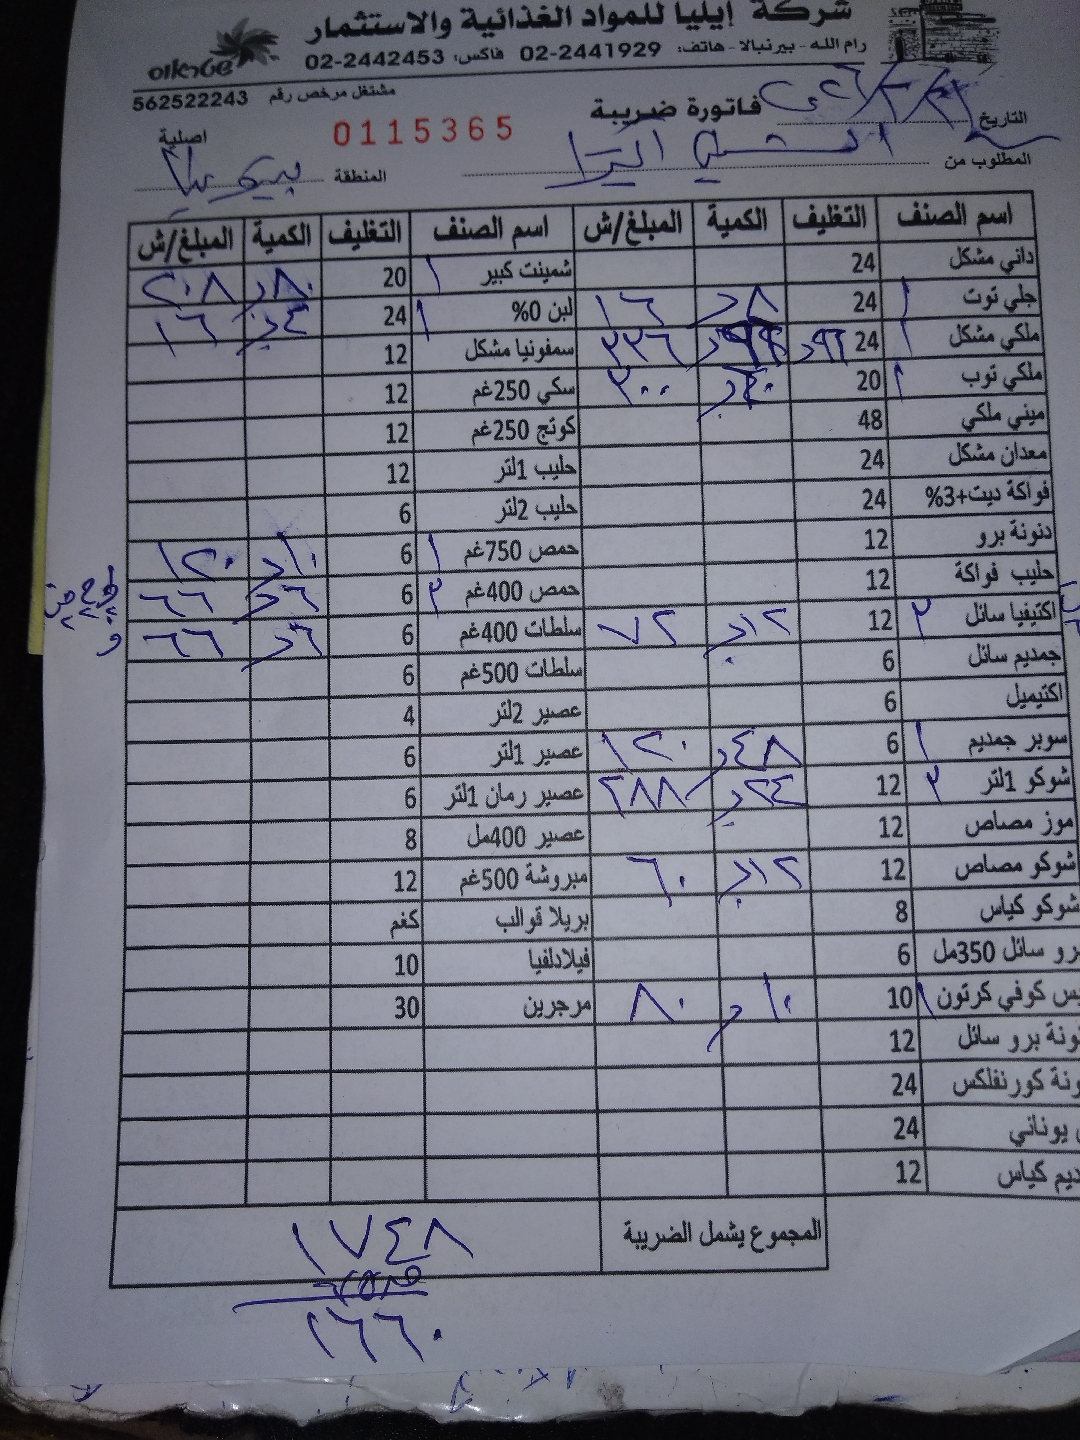 شركة إيليا للمواد الغذائية والاستثمار
رام الله - بيرنبالا - هاتف: 02-2441929 فاكس: 02-2442453
مشتغل مرخص رقم 562522243
التاريخ
فاتورة ضريبة
0115365
اصلية
المطلوب من
المنطقة
اسم الصنف التغليف الكمية المبلغ/ش اسم الصنف التغليف الكمية المبلغ/ش
داني مشكل 24 شمينت كبير ١ 20 ٨٠ ٢٠٨
جلي توت ١ 24 ٨ ١٦ لبن 0% ١ 24 ٤ ١٦
ملكي مشكل ١ 24 ٩٦ ٣٣٦ سمفونيا مشكل 12
ملكي توب ١ 20 ٤٠ ٢٠٠ سكي 250غم 12
ميني ملكي 48 كوتج 250غم 12
معدان مشكل 24 حليب 1لتر 12
فواكة ديت+3% 24 حليب 2لتر 6
دنونة برو 12 حمص 750غم ١ 6 ١٠ ١٢٠
حليب فواكة 12 حمص 400غم ٢ 6 ٦ ٦٦
اكتيفيا سائل ٢ 12 ١٢ ٧٢ سلطات 400غم 6 ٦ ٦٦
جمديم سائل 6 سلطات 500غم 6
اكتيميل 6 عصير 2لتر 4
سوبر جمديم ١ 6 ٤٨ ١٢٠ عصير 1لتر 6
شوكو 1لتر ٢ 12 ٢٤ ٢٨٨ عصير رمان 1لتر 6
موز مصاص 12 عصير 400مل 8
شوكو مصاص 12 ١٢ ٦٠ مبروشة 500غم 12
شوكو كياس 8 بريلا قوالب كغم
رو سائل 350مل 6 فيلادلفيا 10
يس كوفي كرتون ١ 10 ١٠ ٨٠ مرجرين 30
ونة برو سائل 12
ونة كورنفلكس 24
يوناني 24
ديم كياس 12
المجموع يشمل الضريبة ١٧٤٨
١٦٦٠